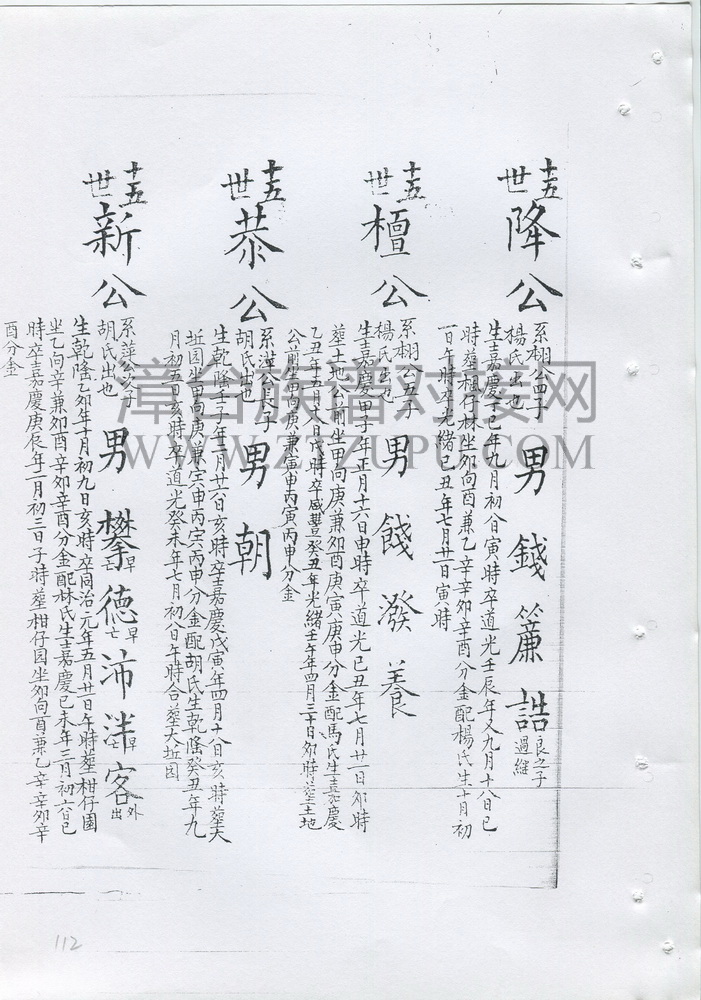 十五世 降公
系栩公四子
楊氏出也
男 錢 簾 誥 良之子過継
生嘉慶丁巳年九月初八日寅時卒道光壬辰年又九月十八日巳
時塟楓仔林坐夘向酉兼乙辛辛夘辛酉分金配楊氏生十月初
一日午時卒光緒己丑年七月廿一日寅時
十五世 檀公
系栩公五子
楊氏出也
男 餞 潑 養
生嘉慶甲子年正月十六日申時卒道光己丑年七月廿一日夘時
塟土地公前坐甲向庚兼夘酉庚寅庚申分金配馬氏生嘉慶
乙丑年五月八日戌時卒咸豐癸丑年光緒壬午年四月三十日夘時塟土地
公前坐甲向庚兼寅申丙寅丙申分金
十五世 恭公
系漢公長子
胡氏出也
男 朝
生乾隆壬子年二月廿六日亥時卒嘉慶戊寅年四月十八日亥時塟大
坵园坐甲向庚兼寅申丙寅丙申分金配胡氏生乾隆癸丑年九
月初五日亥時卒道光癸未年七月初八日午時合塟大坵园
十五世 新公
系萍公次子
胡氏出也
男 攀早亡 德早亡 沛 泮早亡 客外出
生乾隆乙卯年十月初九日亥時卒同治元年五月廿日午時塟柑仔園
坐乙向辛兼夘酉辛夘辛酉分金配林氏生嘉慶己未年三月初六日巳
時卒嘉慶庚辰年二月初三日子時塟柑仔园坐夘向酉兼乙辛辛夘辛
酉分金
漳台族谱对接网
WWW.ZTZUPU.COM
112